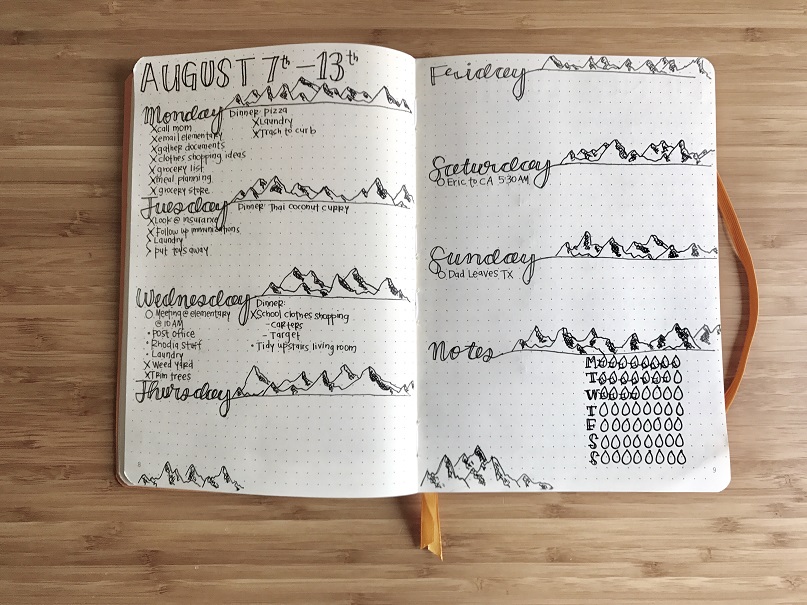 AUGUST 7th - 13th
Monday
Dinner: pizza
X call mom
X Laundry
X email elementary
X Trash to curb
X gather documents
X clothes shopping ideas
X grocery list
X meal planning
X grocery store
Tuesday
Dinner: Thai coconut curry
X Look @ insurance
X Follow up immunizations
> Laundry
> put toys away
Wednesday
Dinner:
O Meeting @ elementary
@ 10 AM
• Post office
• Rhodia Staff
• Laundry
X Weed Yard
X Trim trees
X School clothes shopping
- carters
- Target
• Tidy upstairs living room
Thursday
8
Friday
Saturday
O Eric to CA 5:30 AM
Sunday
O Dad Leaves TX
Notes
M
T
W
T
F
S
S
9